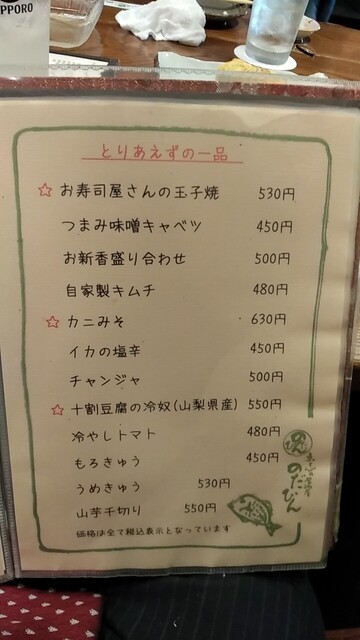 PPORO
とりあえずの一品
☆ お寿司屋さんの玉子焼 530円
つまみ味噌キャベツ 450円
お新香盛り合わせ 500円
自家製キムチ 480円
☆ カニみそ 630円
イカの塩辛 450円
チャンジャ 500円
☆ 十割豆腐の冷奴(山梨県産) 550円
冷やしトマト 480円
もろきゅう 450円
うめきゅう 530円
山芋千切り 550円
価格は全て税込表示となっています
のだびん